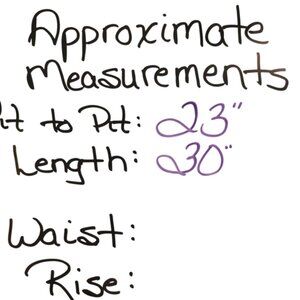 Approximate
Measurements
it to Pit: 23"
Length: 30"
Waist:
Rise: